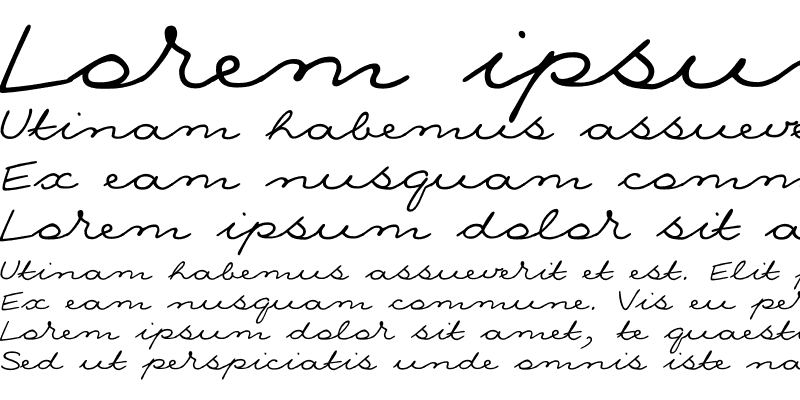 Lorem ipsu
Utinam habemus assueve
Ex eam nusquam comm
Lorem ipsum dolor sit a
Utinam habemus assueverit et est. Elit p
Ex eam nusquam commune. Vis eu per
Lorem ipsum dolor sit amet, te quaesti
Sed ut perspiciatis unde omnis iste na